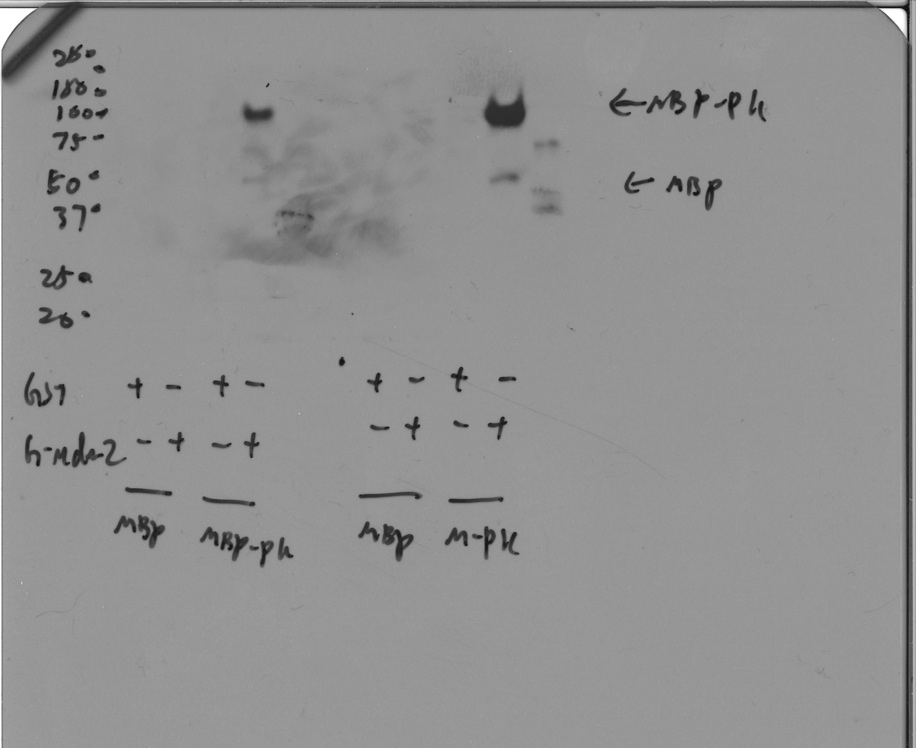 250
150
100
75
50
37
25
20
← MBP-PK
← MBP
GST + - + - + - + -
G-Mdm2 - + - + - + - +
MBP MBP-PK MBP M-PK